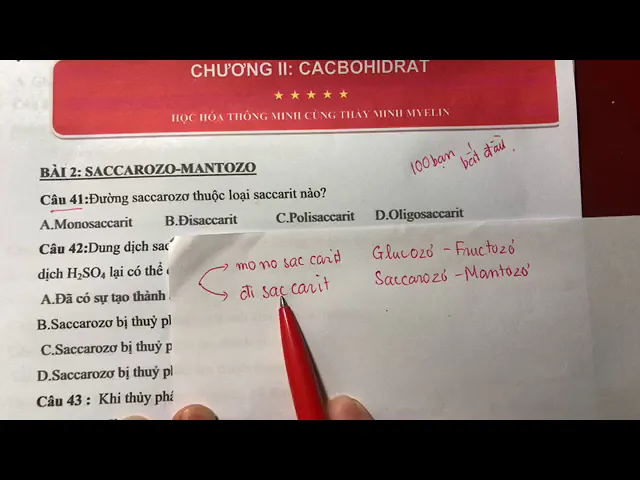 CHƯƠNG II: CACBOHIDRAT
HỌC HÓA THÔNG MINH CÙNG THẦY MINH MYELIN
100 bạn bắt đầu.
BÀI 2: SACCAROZO-MANTOZO
Câu 41:Đường saccarozơ thuộc loại saccarit nào?
A.Monosaccarit B.Đisaccarit C.Polisaccarit D.Oligosaccarit
Câu 42:Dung dịch sac
dịch H₂SO₄ lại có thể
A.Đã có sự tạo thành
B.Saccarozơ bị thuỷ
C.Saccarozơ bị thuỷ p
D.Saccarozơ bị thuỷ ph
Câu 43 : Khi thủy phâ
mono sac carid Glucozơ - Fructozơ
đi sac carit Saccarozơ - Mantozơ